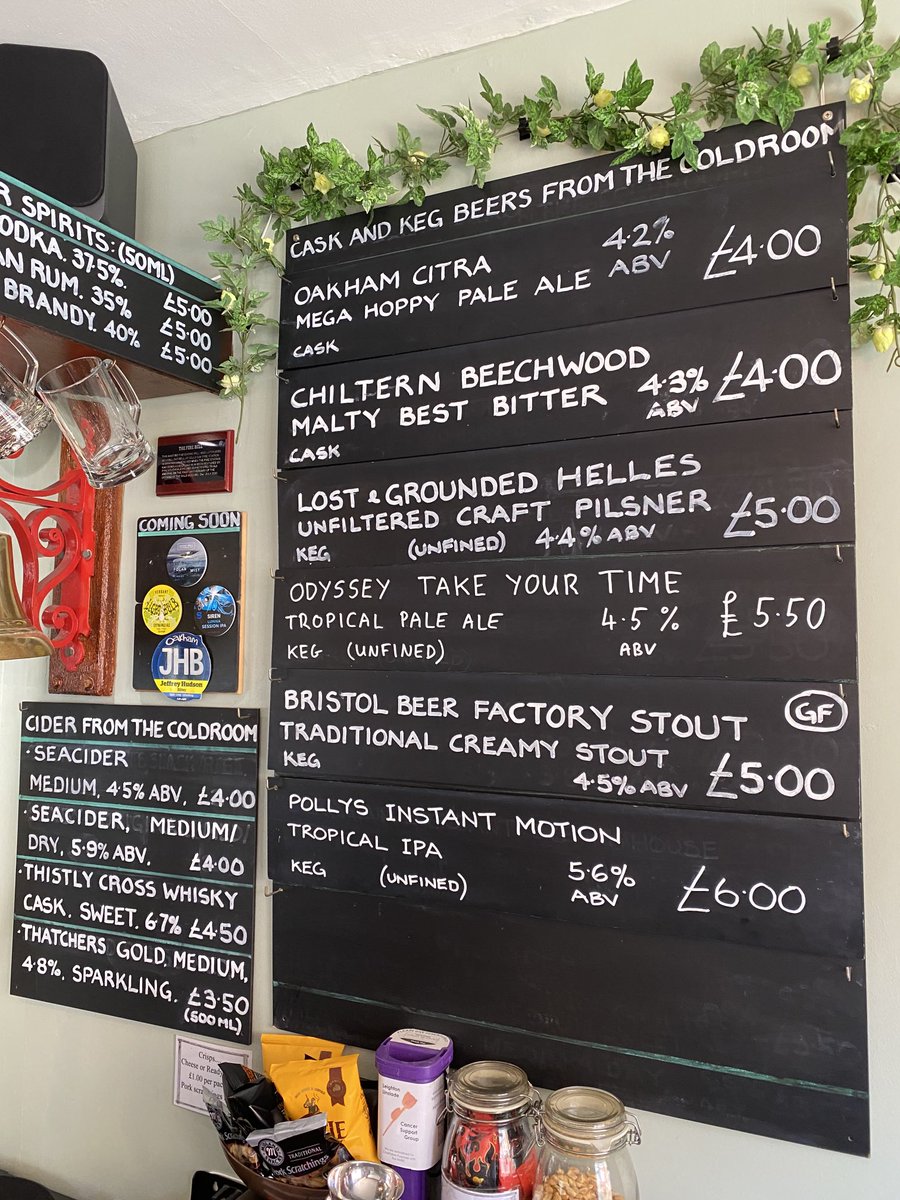 CASK AND KEG BEERS FROM THE COLDROOM
OAKHAM CITRA 4.2%
MEGA HOPPY PALE ALE ABV £4.00
CASK
CHILTERN BEECHWOOD
MALTY BEST BITTER 4.3% £4.00
ABV
CASK
LOST & GROUNDED HELLES
UNFILTERED CRAFT PILSNER
KEG (UNFINED) 4.4% ABV £5.00
ODYSSEY TAKE YOUR TIME
TROPICAL PALE ALE 4.5% £5.50
KEG (UNFINED) ABV
BRISTOL BEER FACTORY STOUT GF
TRADITIONAL CREAMY STOUT
KEG 4.5% ABV £5.00
POLLYS INSTANT MOTION
TROPICAL IPA
KEG (UNFINED) 5.6% £6.00
ABV
R SPIRITS: (50ML)
ODKA. 37.5%. £5.00
AN RUM. 35% £5.00
BRANDY. 40% £5.00
THE FIRE BELL
COMING SOON
POLAR MIST
SIREN
LUMINA
SESSION IPA
Oakham
JHB
Jeffrey Hudson
Bitter
CIDER FROM THE COLDROOM
· SEACIDER
MEDIUM, 4.5% ABV, £4.00
· SEACIDER, MEDIUM/
DRY, 5.9% ABV. £4.00
· THISTLY CROSS WHISKY
CASK, SWEET, 6.7% £4.50
· THATCHERS GOLD, MEDIUM,
4.8%, SPARKLING. £3.50
(500ML)
Crisps...
Cheese or Ready
£1.00 per pac
Pork scra
TRADITIONAL
Pork Scratchings
Leighton
Linslade
Cancer
Support
Group